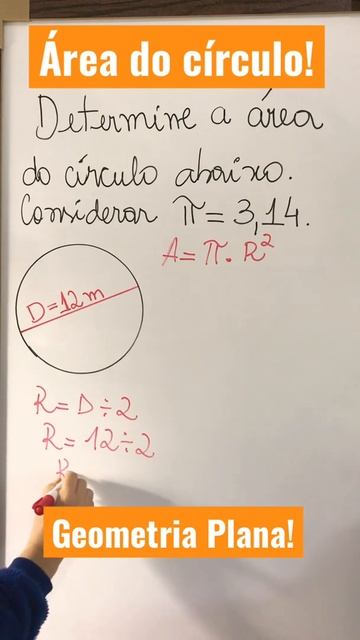 Área do círculo!
Determine a área
do círculo abaixo.
Considerar π = 3,14.
A = π . R²
D = 12 m
R = D ÷ 2
R = 12 ÷ 2
R
Geometria Plana!